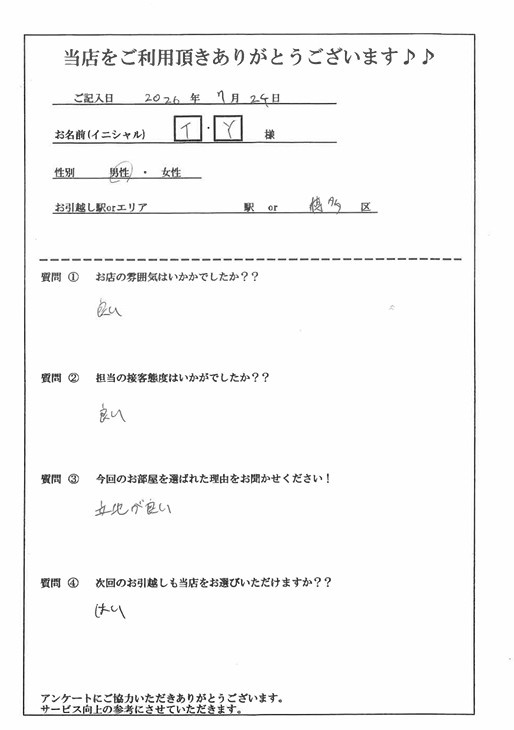 当店をご利用頂きありがとうございます♪♪
ご記入日 2026 年 7 月 24 日
お名前(イニシャル) I ・ Y 様
性別 男性 ・ 女性
お引越し駅orエリア 駅 or 博多 区
質問 ① お店の雰囲気はいかかでしたか？？
良い
質問 ② 担当の接客態度はいかがでしたか？？
良い
質問 ③ 今回のお部屋を選ばれた理由をお聞かせください！
立地が良い
質問 ④ 次回のお引越しも当店をお選びいただけますか？？
はい
アンケートにご協力いただきありがとうございます。
サービス向上の参考にさせていただきます。